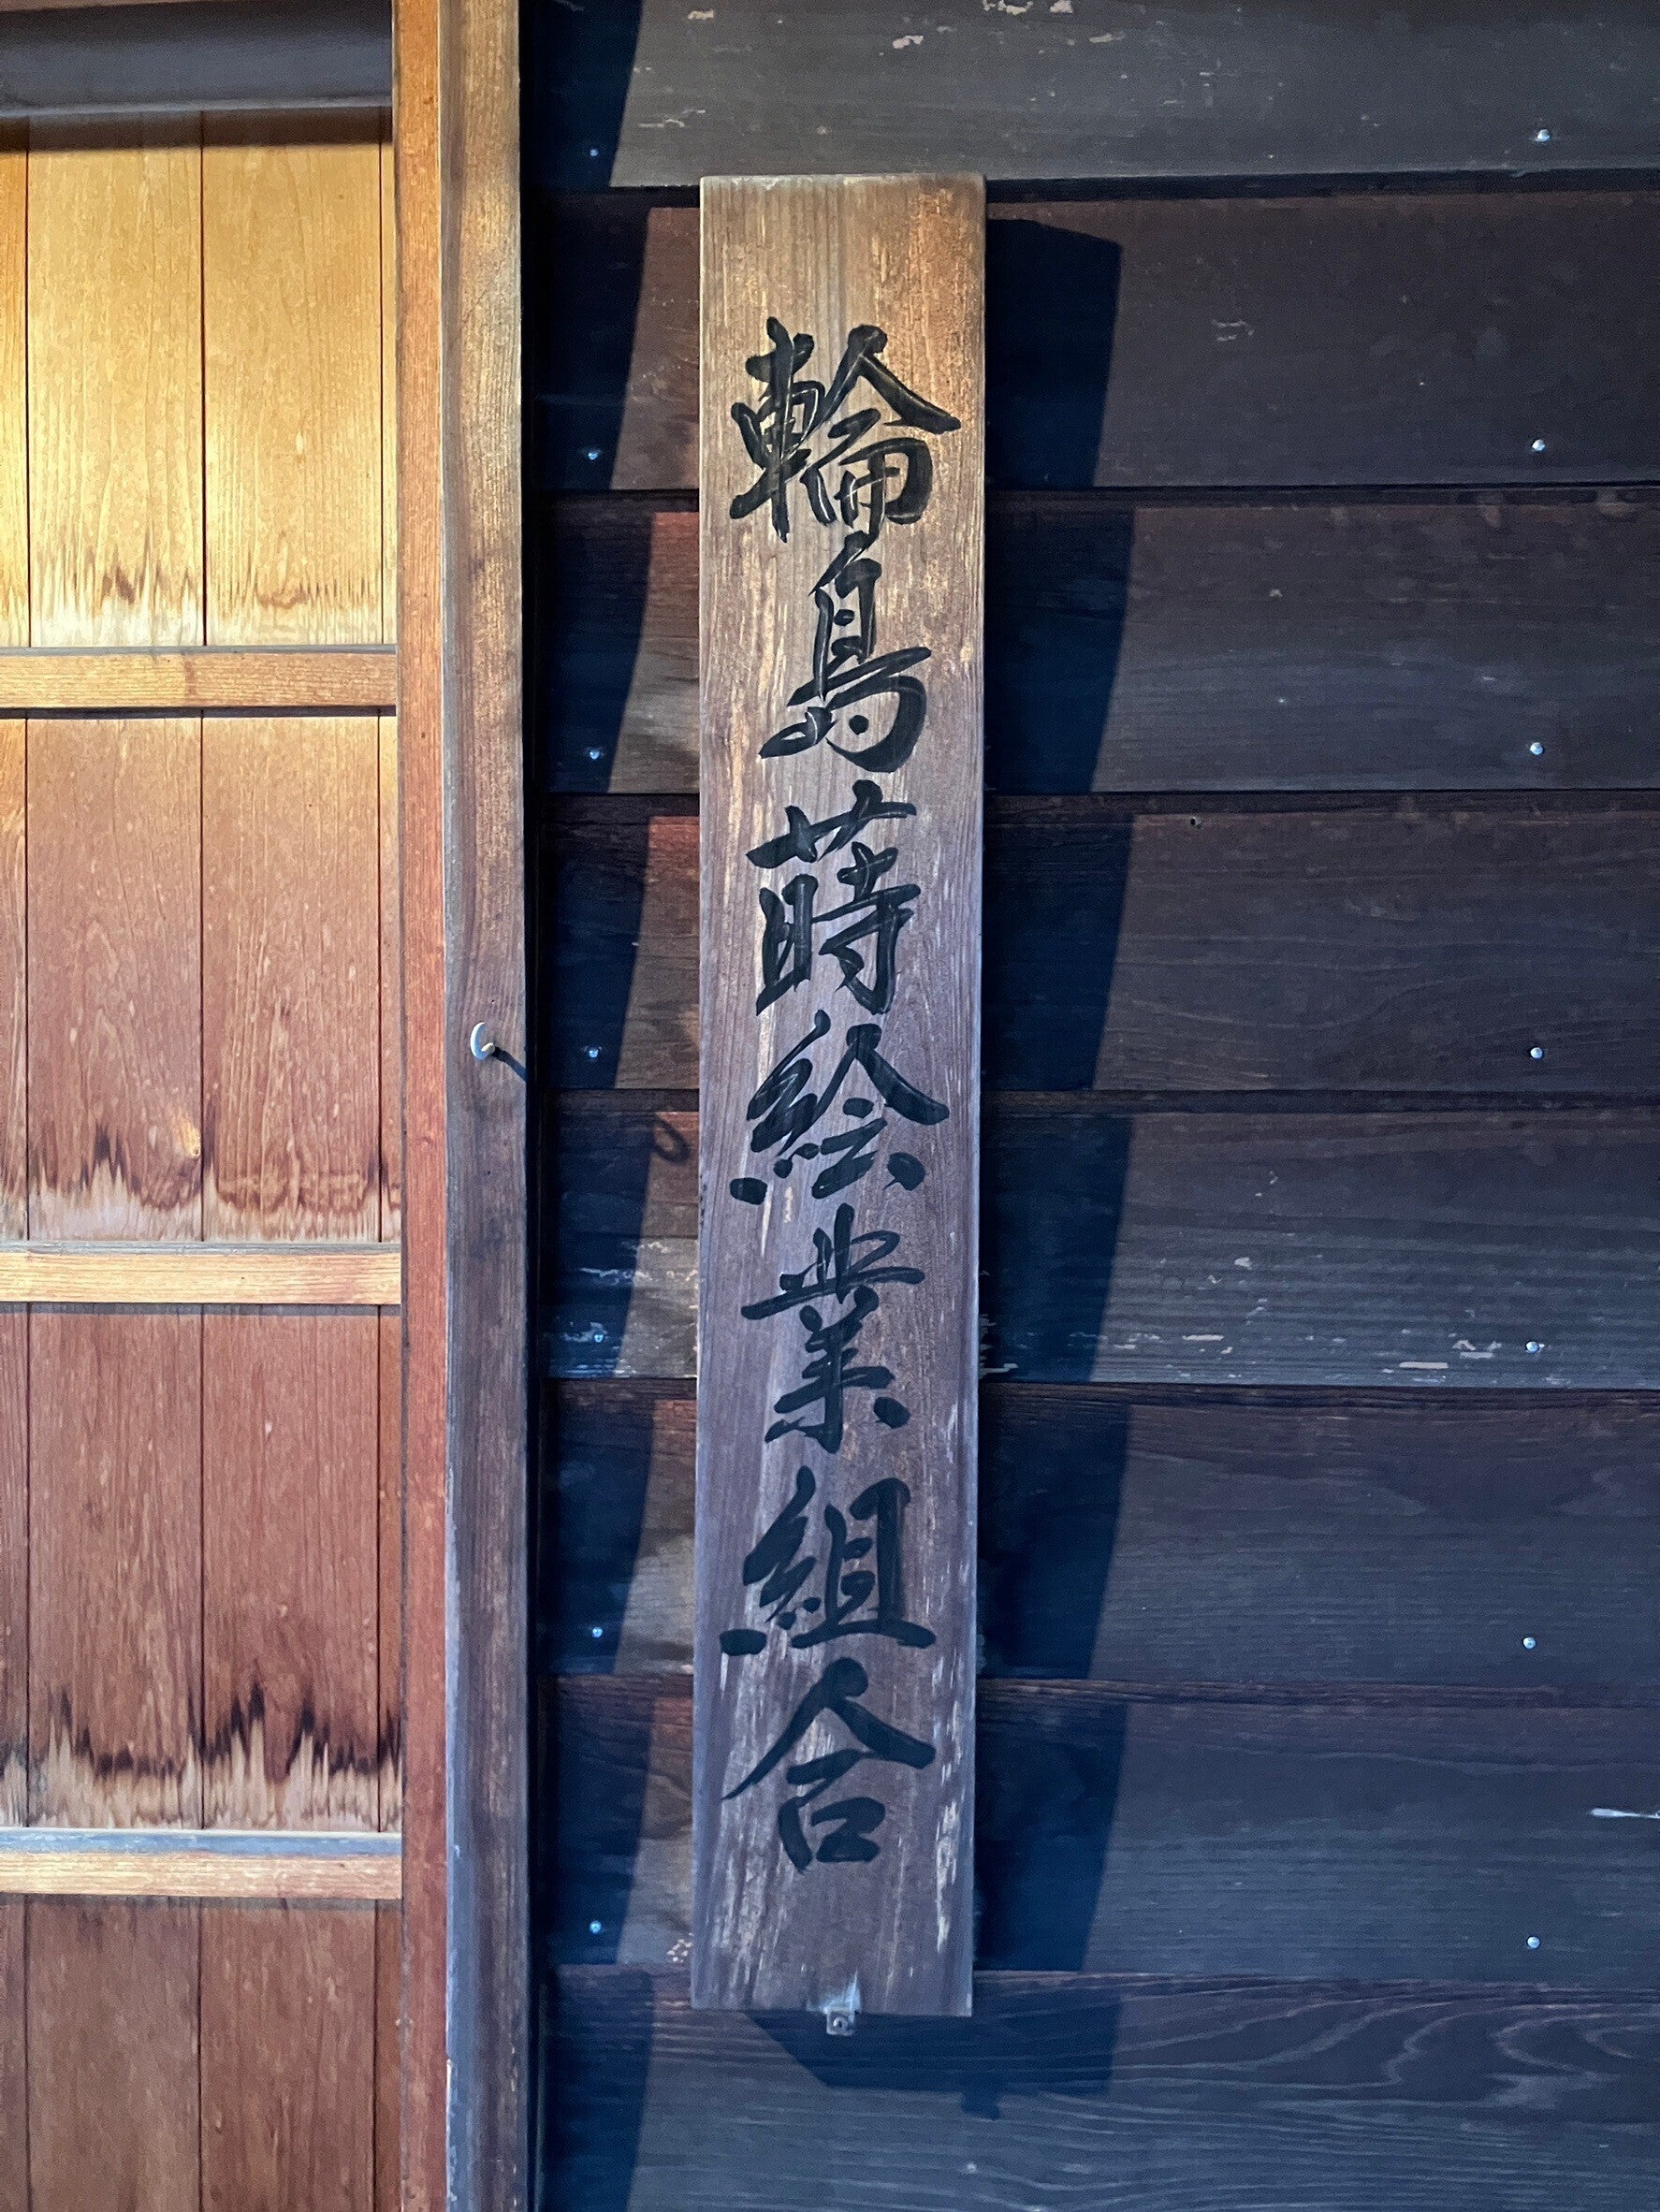 輪島蒔絵業組合